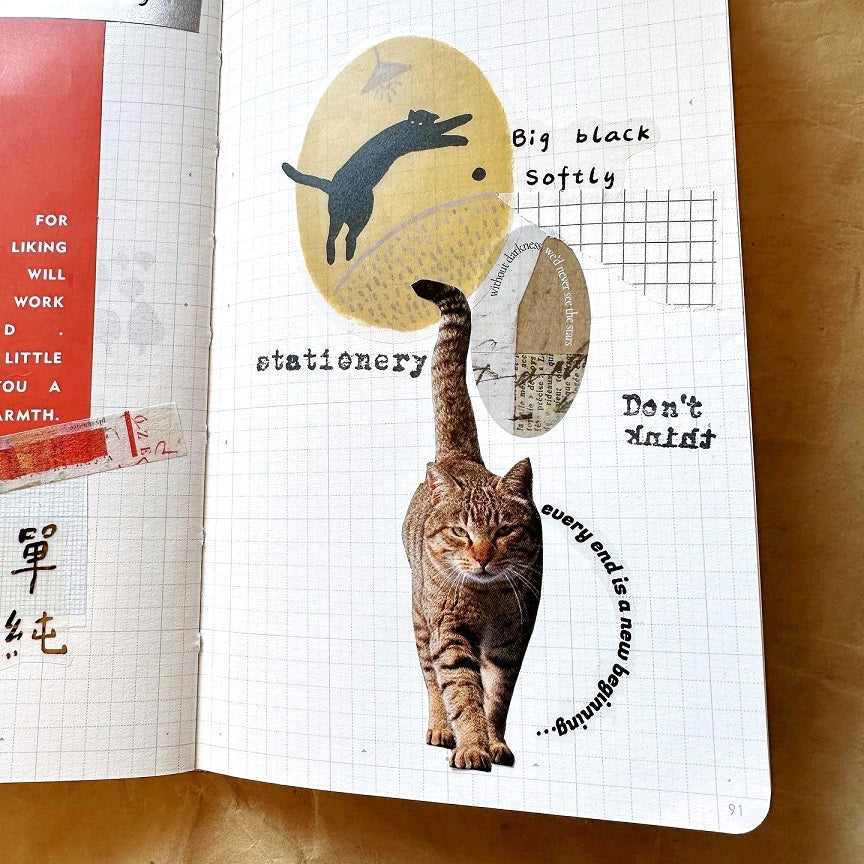 FOR
LIKING
WILL
WORK
D .
LITTLE
YOU A
ARMTH.
單
純
Big black
Softly
without darkness
we'd never see the stars
stationery
Don't
think
every end is a new beginning...
91